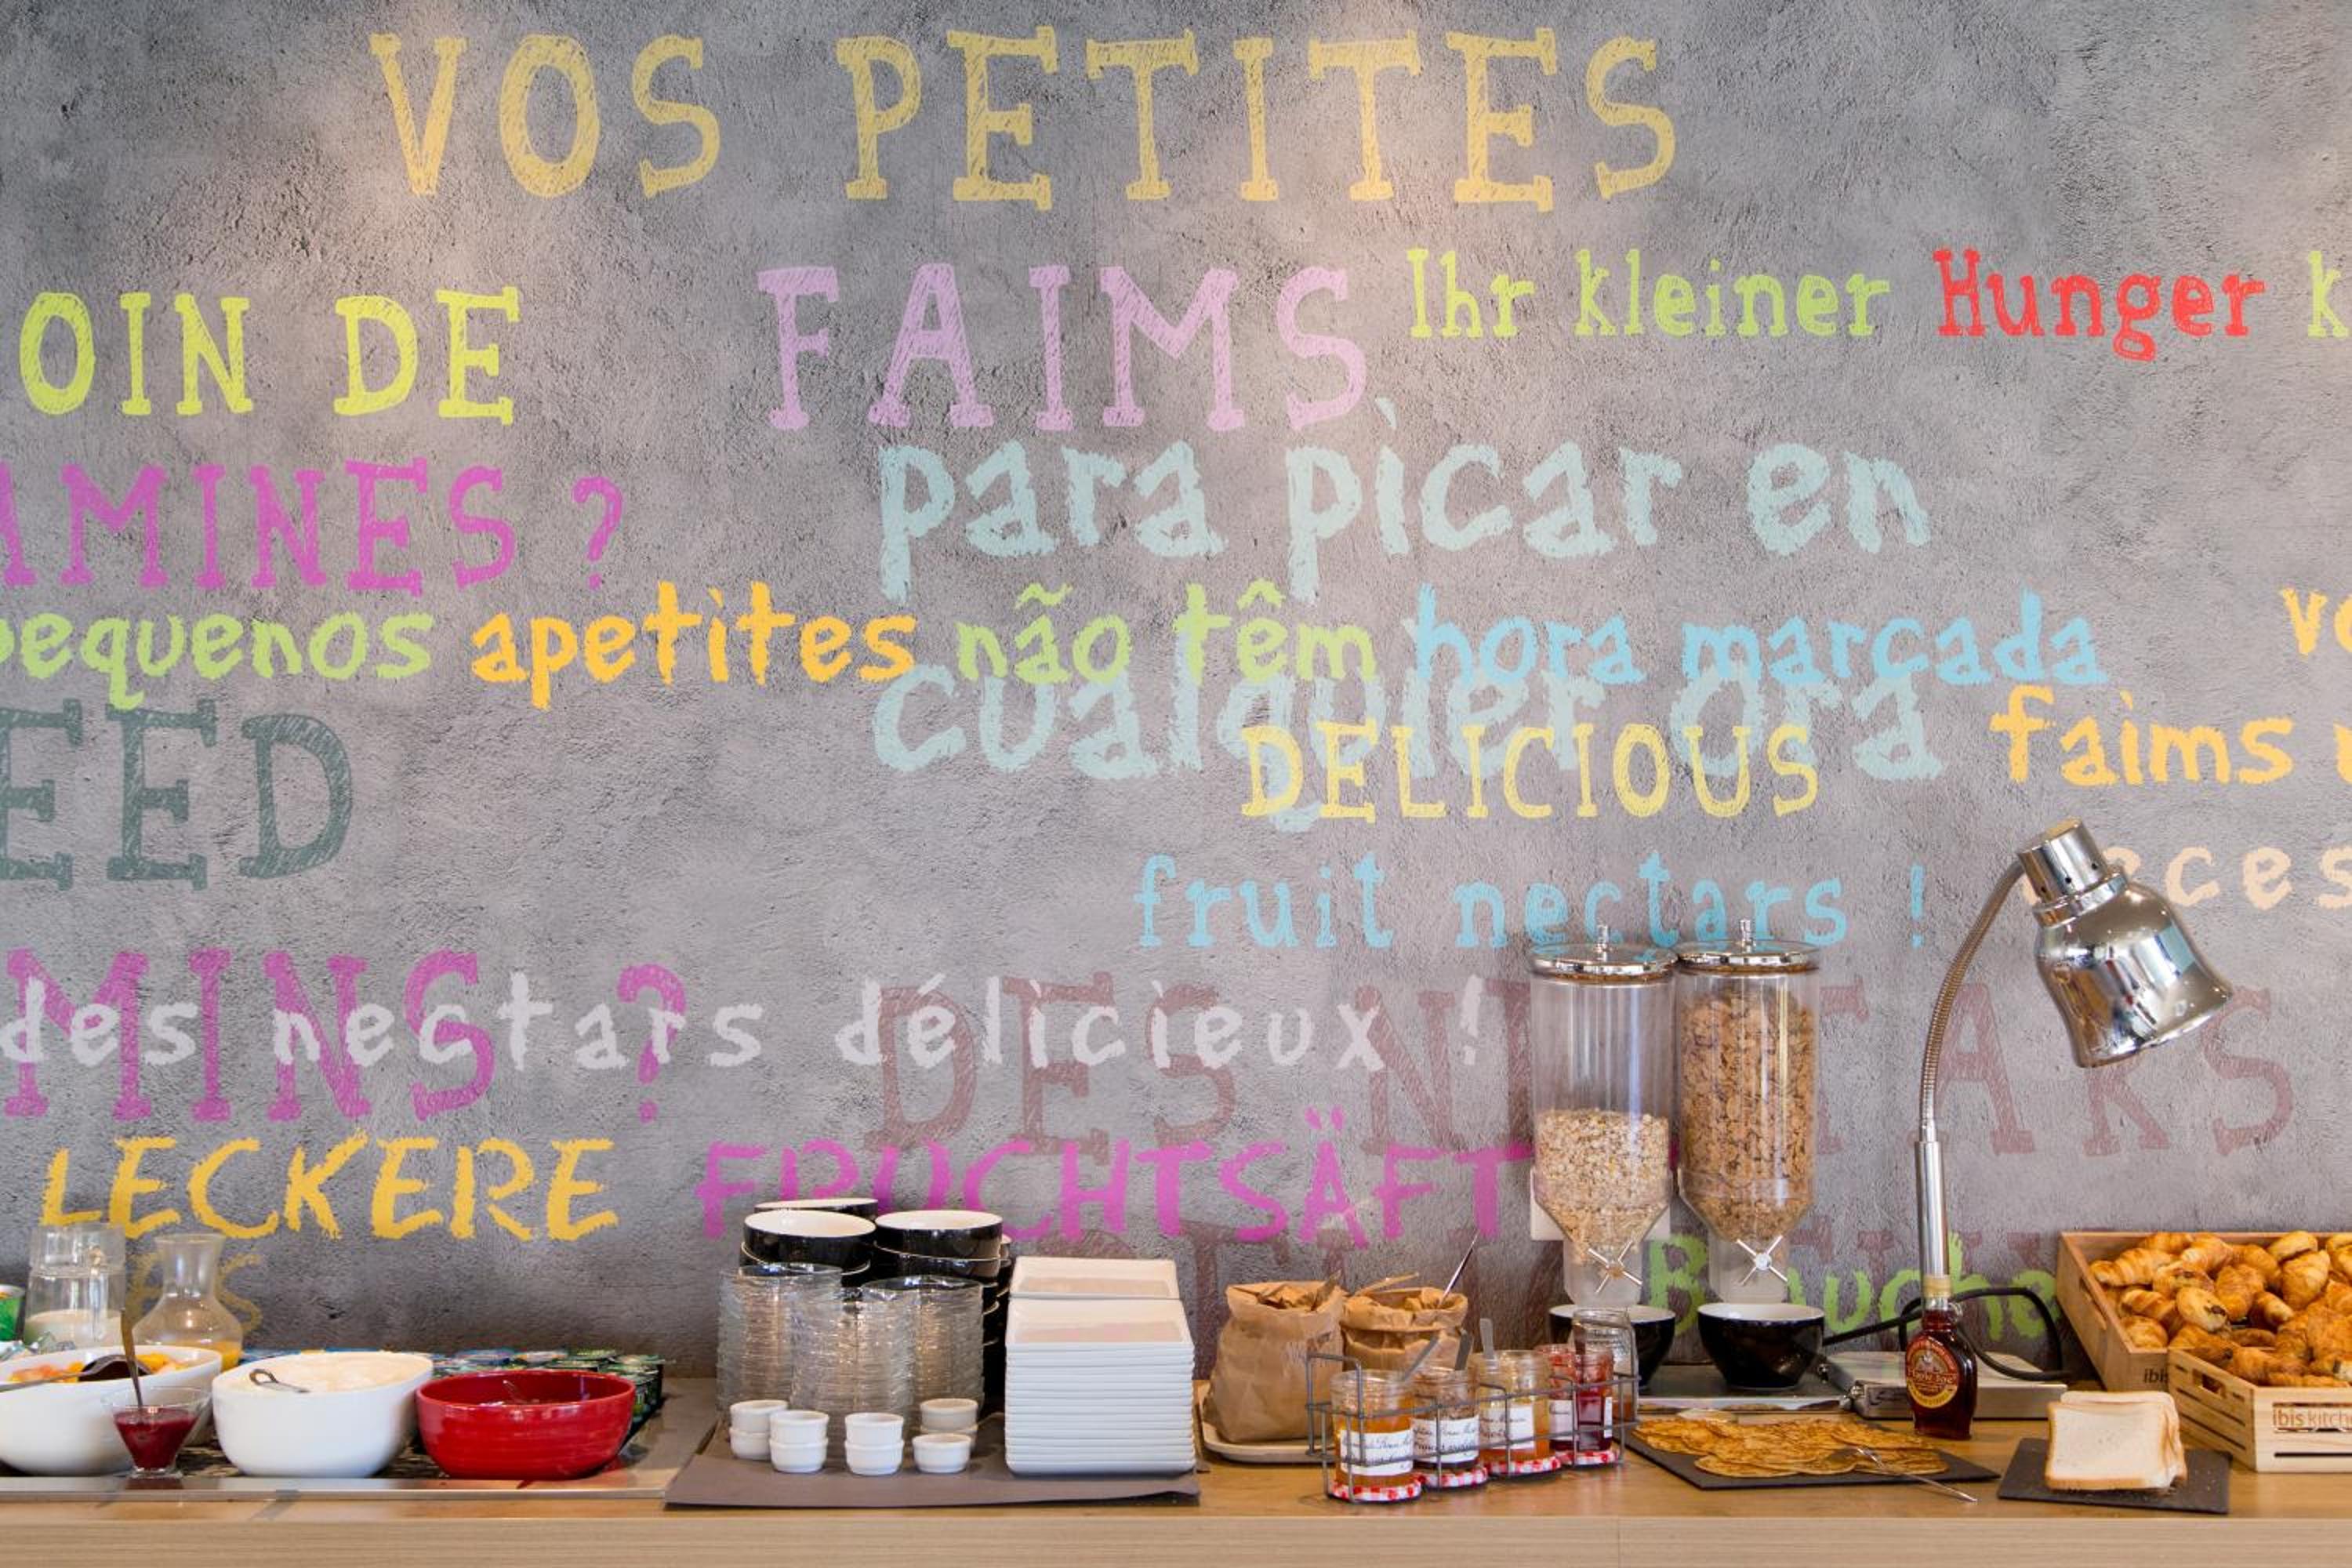 VOS PETITES
FAIMS
Ihr kleiner Hunger k
OIN DE
AMINES ?
para picar en
pequenos apetites não têm hora marcada
cualquier ora
EED
DELICIOUS
faims
fruit nectars !
eces
MINS ?
des nectars délicieux !
DES NECTARS
LECKERE FRUCHTSÄFT
ES
ibis
ibis kitch